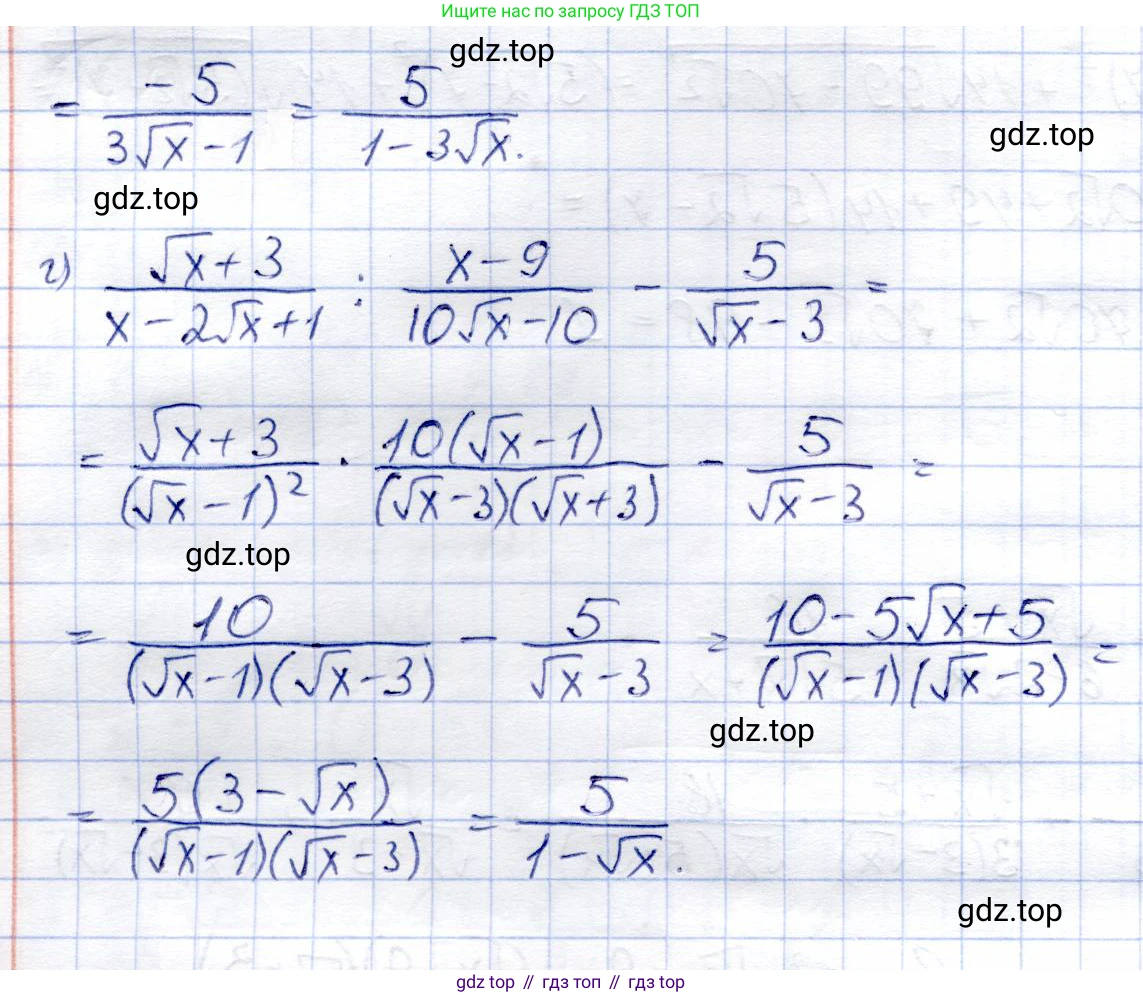 Ищите нас по запросу ГДЗ ТОП
gdz.top
= -5/(3√x-1) = 5/(1-3√x).
gdz.top
gdz.top
г) (√x+3)/(x-2√x+1) : (x-9)/(10√x-10) - 5/(√x-3) =
= (√x+3)/(√x-1)² · 10(√x-1)/((√x-3)(√x+3)) - 5/(√x-3) =
gdz.top
= 10/((√x-1)(√x-3)) - 5/(√x-3) = (10-5√x+5)/((√x-1)(√x-3)) =
gdz.top
= 5(3-√x)/((√x-1)(√x-3)) = 5/(1-√x).
gdz.top
gdz top // гдз топ // gdz top